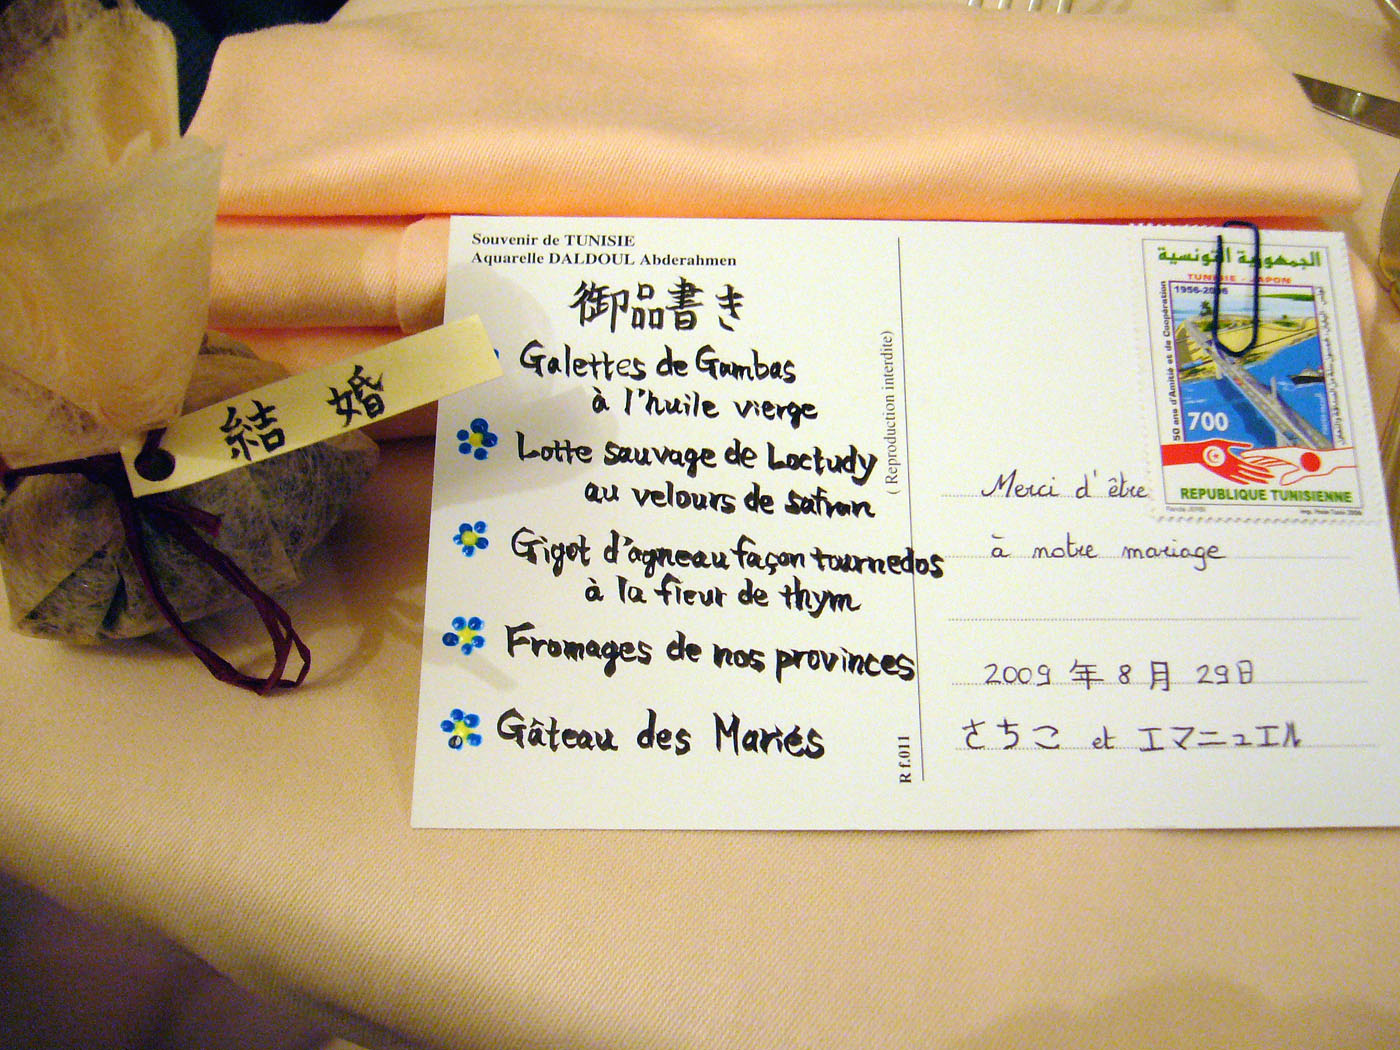 結婚
Souvenir de TUNISIE
Aquarelle DALDOUL Abderahmen
御品書き
Galettes de Gambas
à l'huile vierge
Lotte sauvage de Loctudy
au velours de safran
Gigot d'agneau façon tournedos
à la fleur de thym
Fromages de nos provinces
Gâteau des Mariés
( Reproduction interdite)
R f.011
الجمهورية التونسية
TUNISIE - JAPON
1956-2006
50 ans d'Amitié et de Coopération
700
REPUBLIQUE TUNISIENNE
Merci d'être
à notre mariage
2009年8月29日
さちこ et エマニュエル